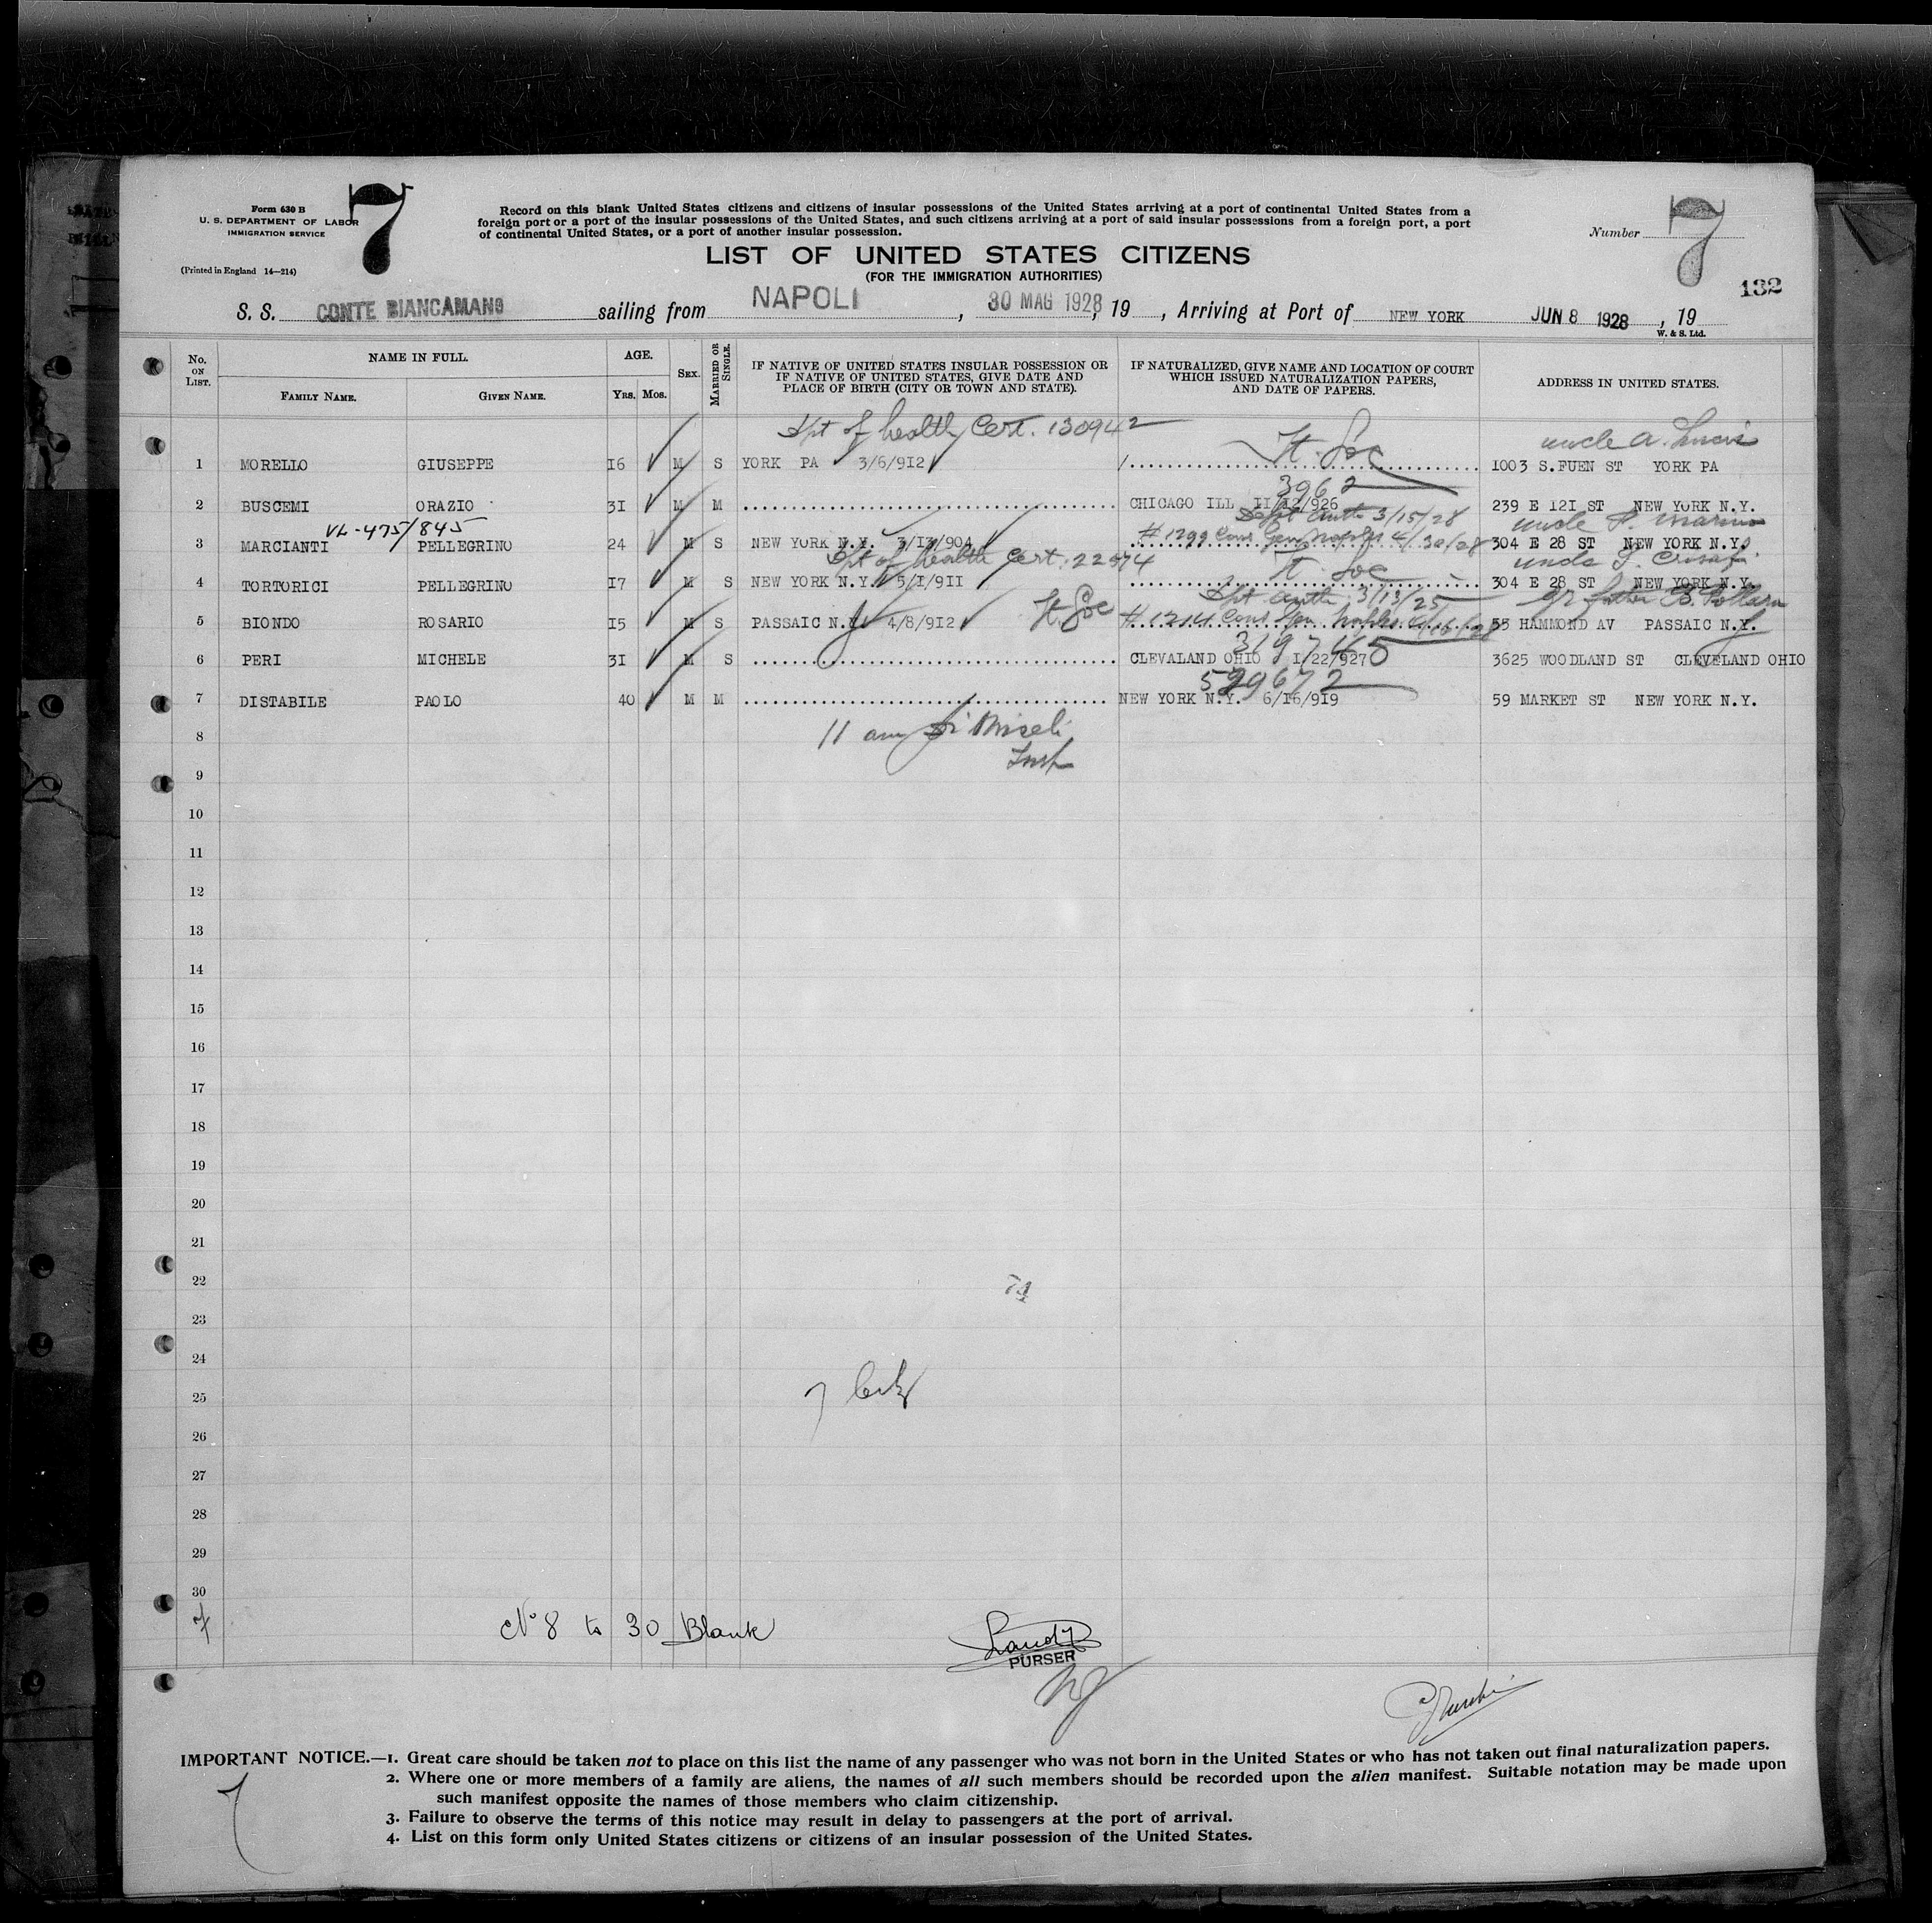 Form 630 B
U. S. DEPARTMENT OF LABOR
IMMIGRATION SERVICE
(Printed in England 14—214)
7
Record on this blank United States citizens and citizens of insular possessions of the United States arriving at a port of continental United States from a
foreign port or a port of the insular possessions of the United States, and such citizens arriving at a port of said insular possessions from a foreign port, a port
of continental United States, or a port of another insular possession.
Number 7
LIST OF UNITED STATES CITIZENS
(FOR THE IMMIGRATION AUTHORITIES)
132
S. S. CONTE BIANCAMANO sailing from NAPOLI, 30 MAG 1928, 19 , Arriving at Port of NEW YORK JUN 8 1928, 19
W. & S. Ltd.
No. ON LIST. NAME IN FULL. AGE. SEX. MARRIED OR SINGLE. IF NATIVE OF UNITED STATES INSULAR POSSESSION OR IF NATIVE OF UNITED STATES, GIVE DATE AND PLACE OF BIRTH (CITY OR TOWN AND STATE). IF NATURALIZED, GIVE NAME AND LOCATION OF COURT WHICH ISSUED NATURALIZATION PAPERS, AND DATE OF PAPERS. ADDRESS IN UNITED STATES.
FAMILY NAME. GIVEN NAME. Yrs. Mos.
Dpt of health Cert. 130942 uncle a.
1 MORELLO GIUSEPPE I6 M S YORK PA 3/6/9I2 It. Soc 1003 S.FUEN ST YORK PA
3962
2 BUSCEMI ORAZIO 3I M M CHICAGO ILL II/I2/926 239 E I2I ST NEW YORK N.Y.
VL-475/845 Dept auth 3/15/28 uncle P. Marino
3 MARCIANTI PELLEGRINO 24 M S NEW YORK N.Y. 3/I2/904 #1299 Cons Gen Naples 4/30/28 304 E 28 ST NEW YORK N.Y.
Dpt of health Cert. 22574 It. Soc uncle
4 TORTORICI PELLEGRINO I7 M S NEW YORK N.Y. 5/I/9II 304 E 28 ST NEW YORK N.Y.
It. Soc Dpt auth 3/13/25 gr father
5 BIONDO ROSARIO I5 M S PASSAIC N.Y 4/8/9I2 #1214 Cons Gen Naples 4/16/28 55 HAMMOND AV PASSAIC N.Y.
319745
6 PERI MICHELE 3I M S CLEVALAND OHIO I/22/927 3625 WOODLAND ST CLEVELAND OHIO
529672
7 DISTABILE PAOLO 40 M M NEW YORK N.Y. 6/I6/9I9 59 MARKET ST NEW YORK N.Y.
8 11 am
9 Insp
10
11
12
13
14
15
16
17
18
19
20
21
22
74
23
24
25
7
26
27
28
29
30
7
Nº 8 to 30 Blank
PURSER
IMPORTANT NOTICE.—1. Great care should be taken not to place on this list the name of any passenger who was not born in the United States or who has not taken out final naturalization papers.
2. Where one or more members of a family are aliens, the names of all such members should be recorded upon the alien manifest. Suitable notation may be made upon
such manifest opposite the names of those members who claim citizenship.
3. Failure to observe the terms of this notice may result in delay to passengers at the port of arrival.
4. List on this form only United States citizens or citizens of an insular possession of the United States.